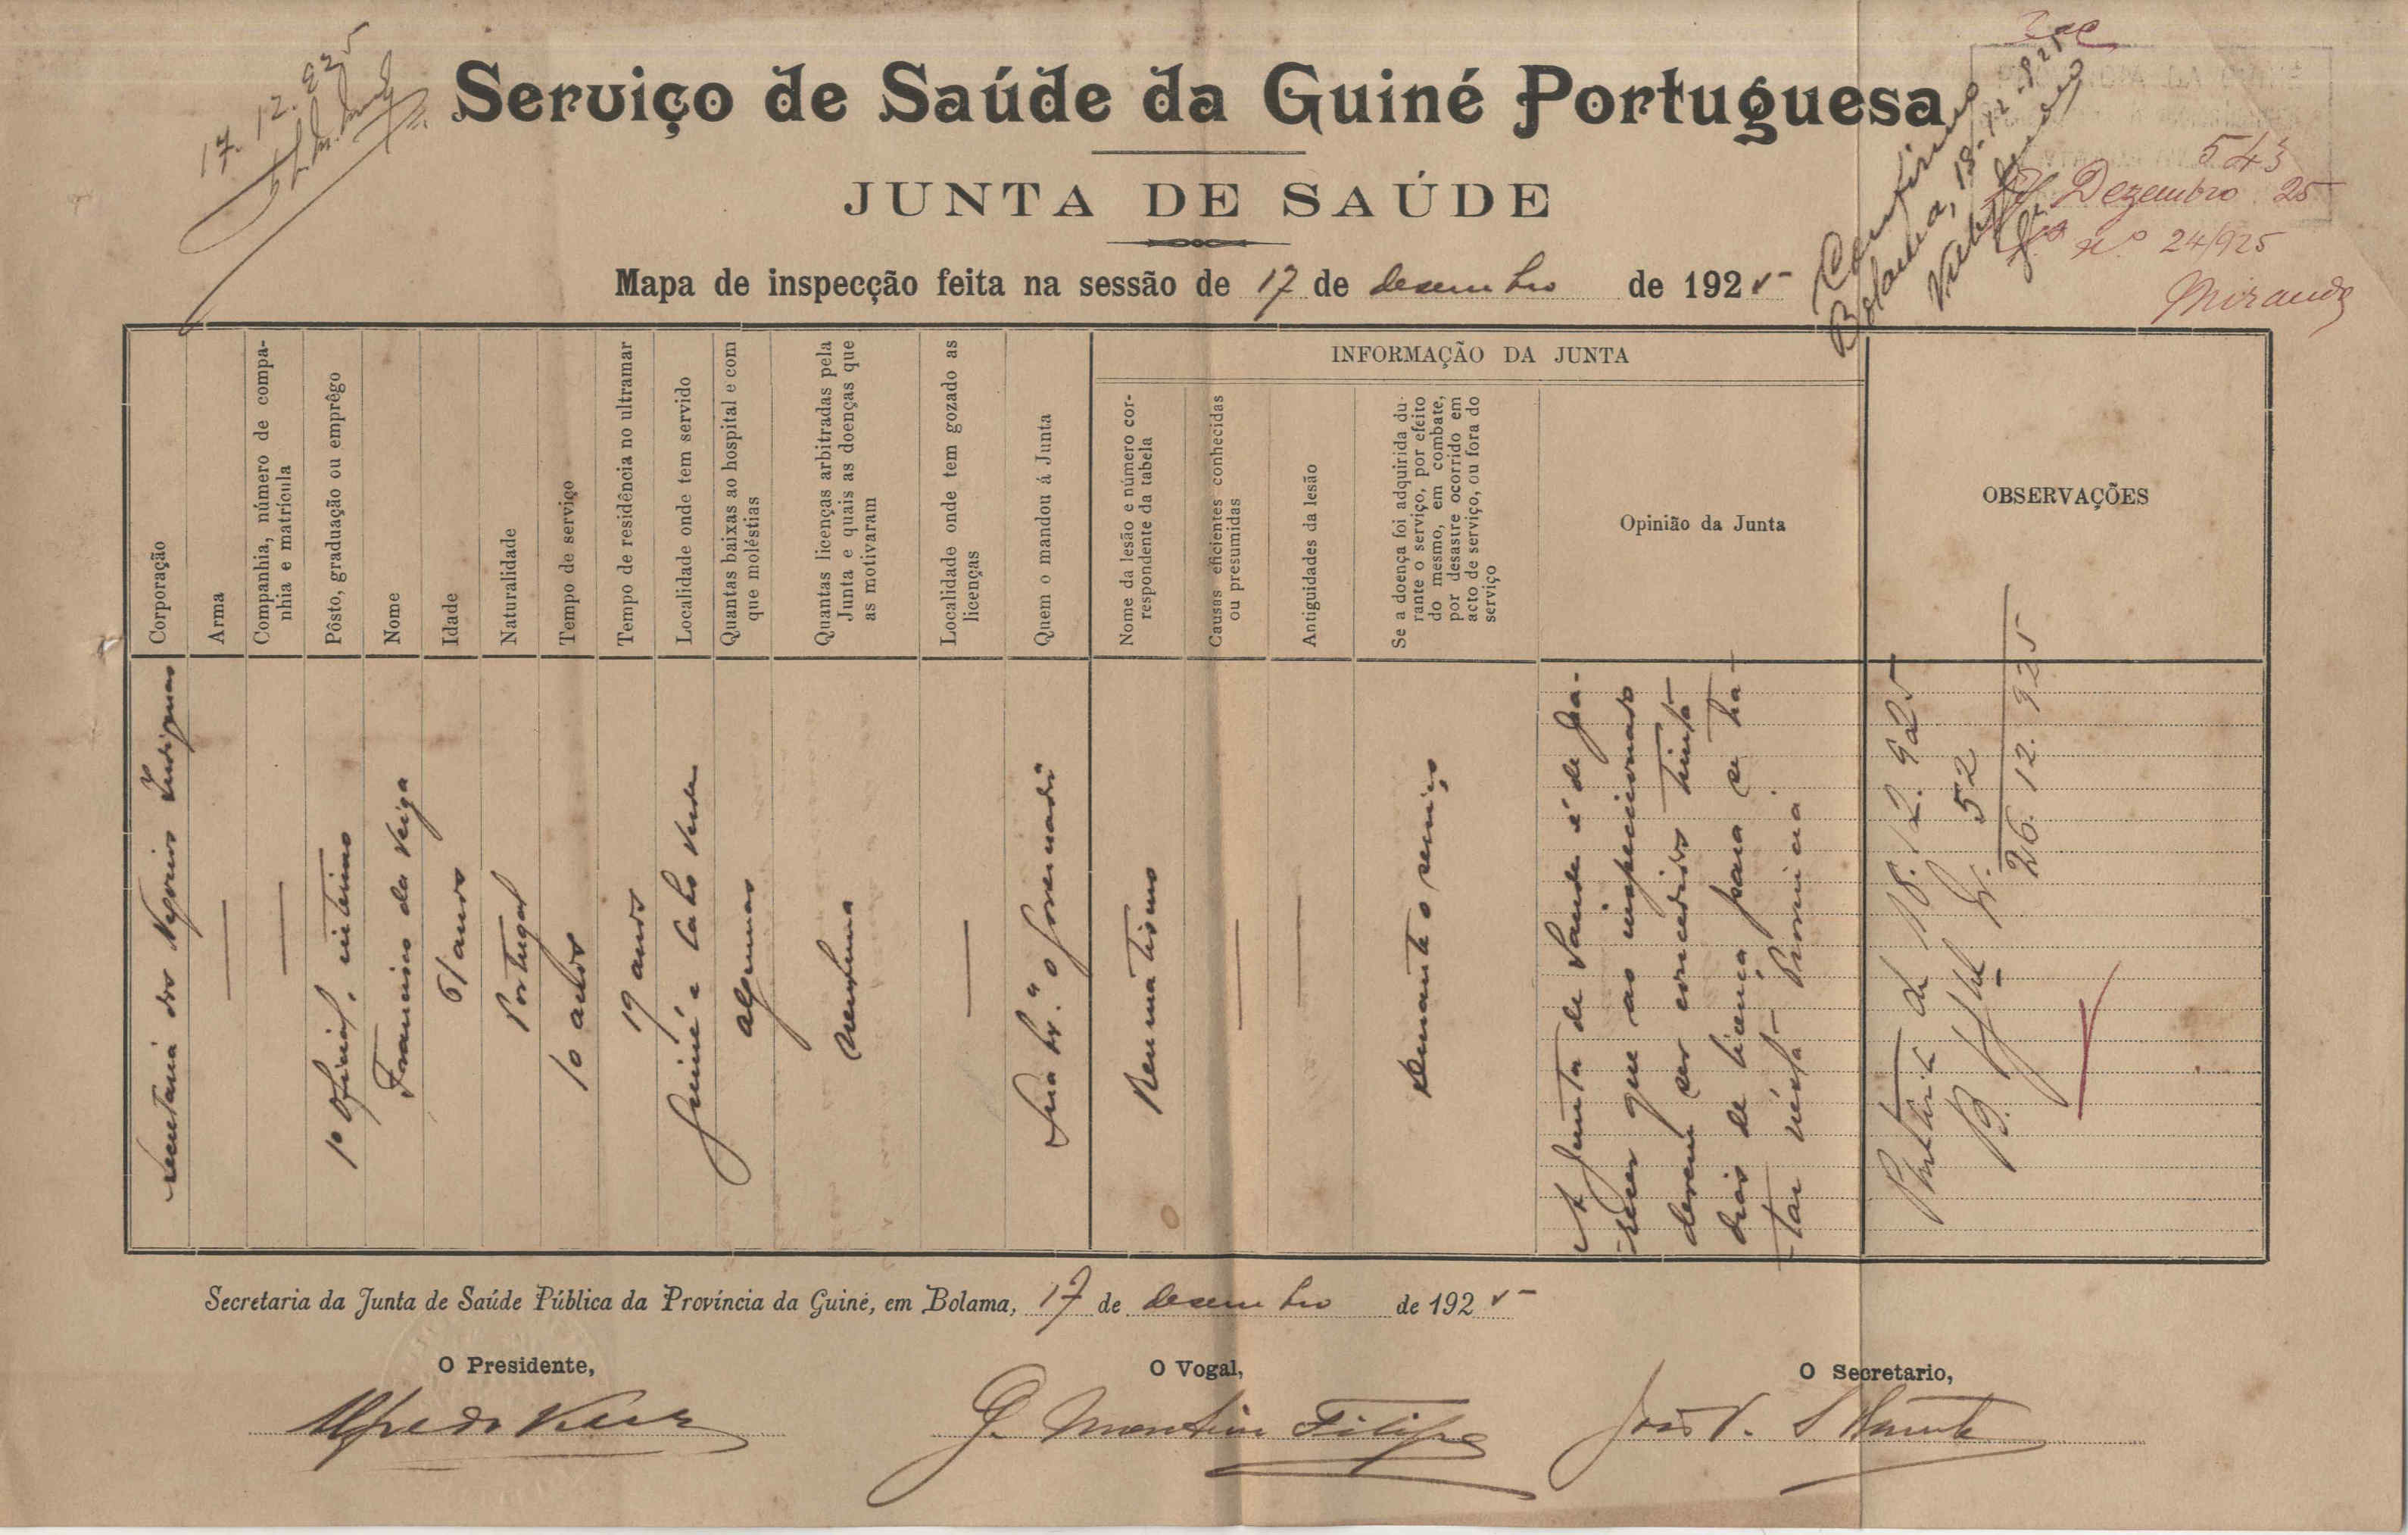 17.12.925
Serviço de Saúde da Guiné Portuguesa
JUNTA DE SAÚDE
Confirmo
Bolama, 18-12-925
543
Dezembro 25
nº 24/925
Miranda
Mapa de inspecção feita na sessão de 17 de desembro de 1925
Corporação
Arma
Companhia, número de compa-
nhia e matrícula
Pôsto, graduação ou emprêgo
Nome
Idade
Naturalidade
Tempo de serviço
Tempo de residência no ultramar
Localidade onde tem servido
Quantas baixas ao hospital e com
que moléstias
Quantas licenças arbitradas pela
Junta e quais as doenças que
as motivaram
Localidade onde tem gozado as
licenças
Quem o mandou á Junta
INFORMAÇÃO DA JUNTA
Nome da lesão e número cor-
respondente da tabela
Causas eficientes conhecidas
ou presumidas
Antiguidades da lesão
Se a doença foi adquirida du-
rante o serviço, por efeito
do mesmo, em combate,
por desastre ocorrido em
acto de serviço, ou fora do
serviço
Opinião da Junta
OBSERVAÇÕES
Secretaria dos Negocios Indigenas
1º Oficial, interino
Francisco da Veiga
51 anos
Portugal
10 anos
19 anos
Guiné e Cabo Verde
algumas
nenhuma
Sua Exª o Governador
Reumatismo
Durante o serviço
A Junta de Saude é de pa-
recer que ao inspecionado
devem ser concedidos trinta
dias de licença para se tra-
tar nesta Provincia.
Portaria de 18.12.925
B. Of. nº 52
26.12.925
Secretaria da Junta de Saúde Pública da Província da Guiné, em Bolama, 17 de desembro de 1925
O Presidente,
O Vogal,
O Secretario,
Alfredo Vieira
J. Martins Filipe
José V.